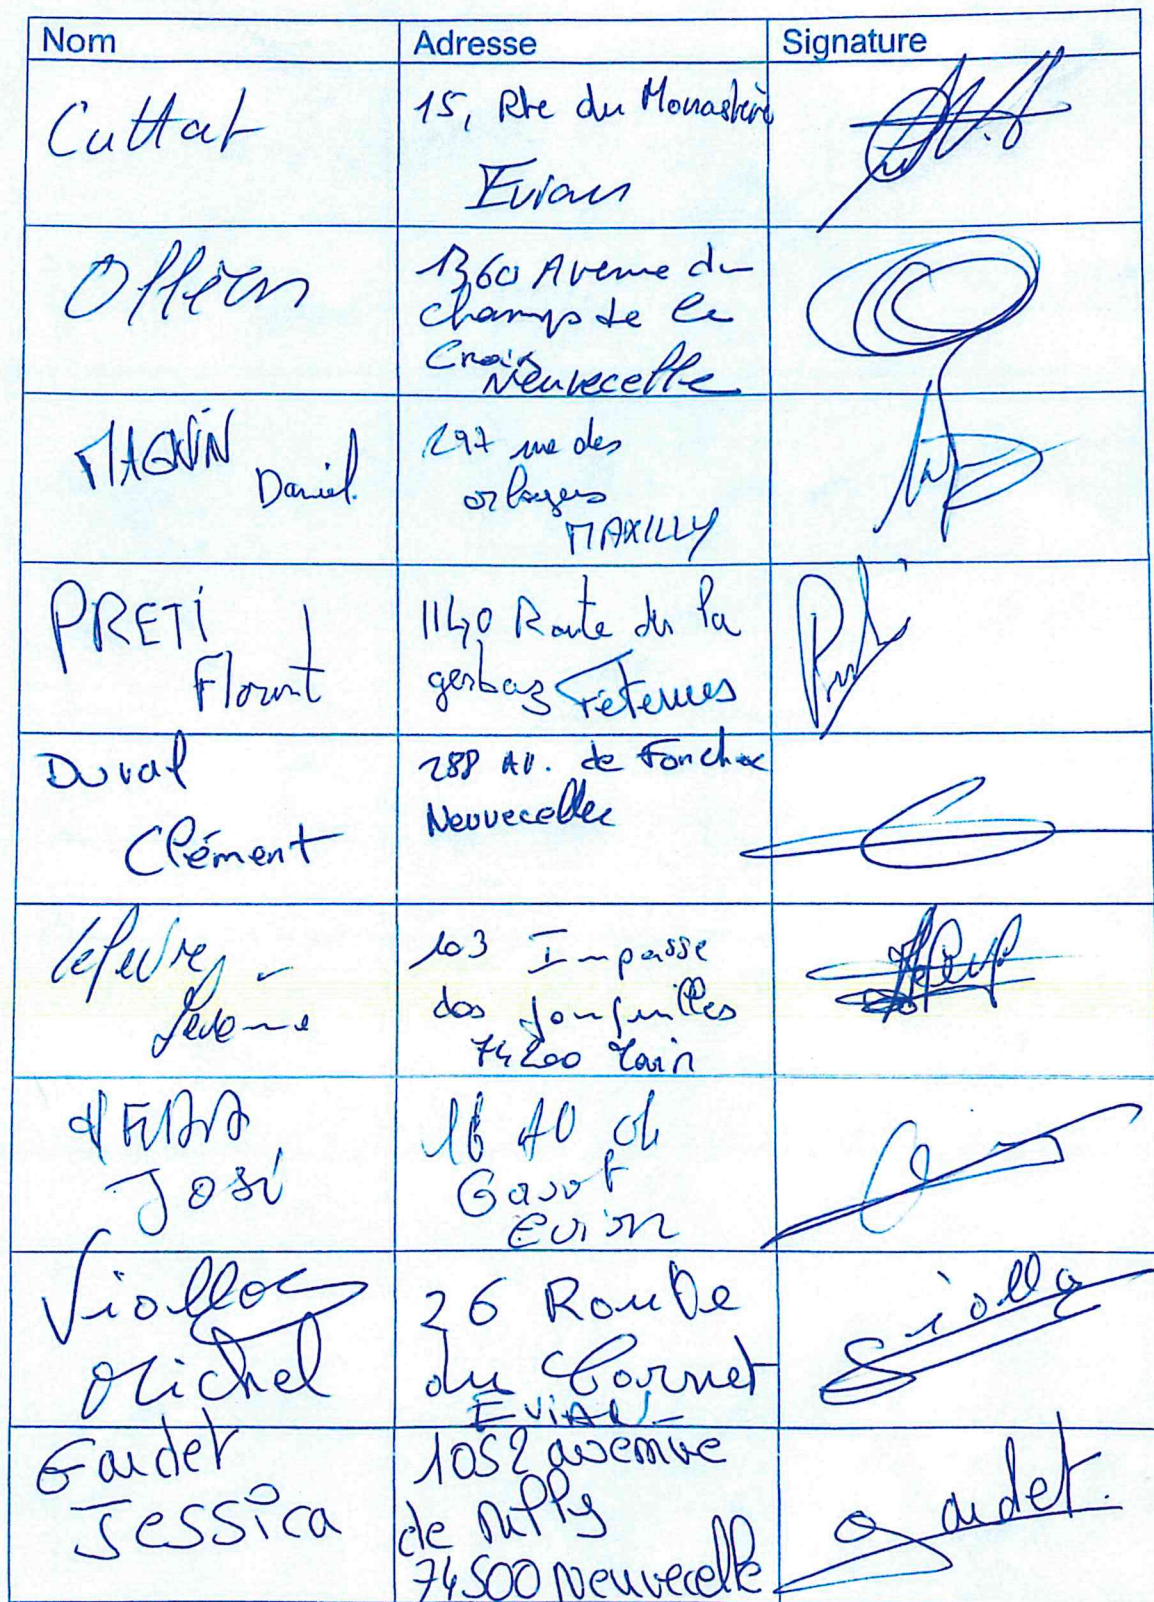 Nom Adresse Signature
Cuttat
15, Rte du Monastère
Evian
1360 Avenue du
champs de la
Croix
Neuvecelle
MAGNIN
Daniel
297 rue des
MAXILLY
PRETI
Florent
1140 Route de la
gerbaz Feternes
Duval
Clément
288 AV. de Fonche
Neuvecelle
Lefevre
Jerome
103 Impasse
des jonquilles
74200
José
16 AV de
Gavot
Evian
Violla
Michel
26 Route
du Cornet
EVIAN
Gaudet
Jessica
1052 avenue
de Milly
74500 Neuvecelle
gaudet